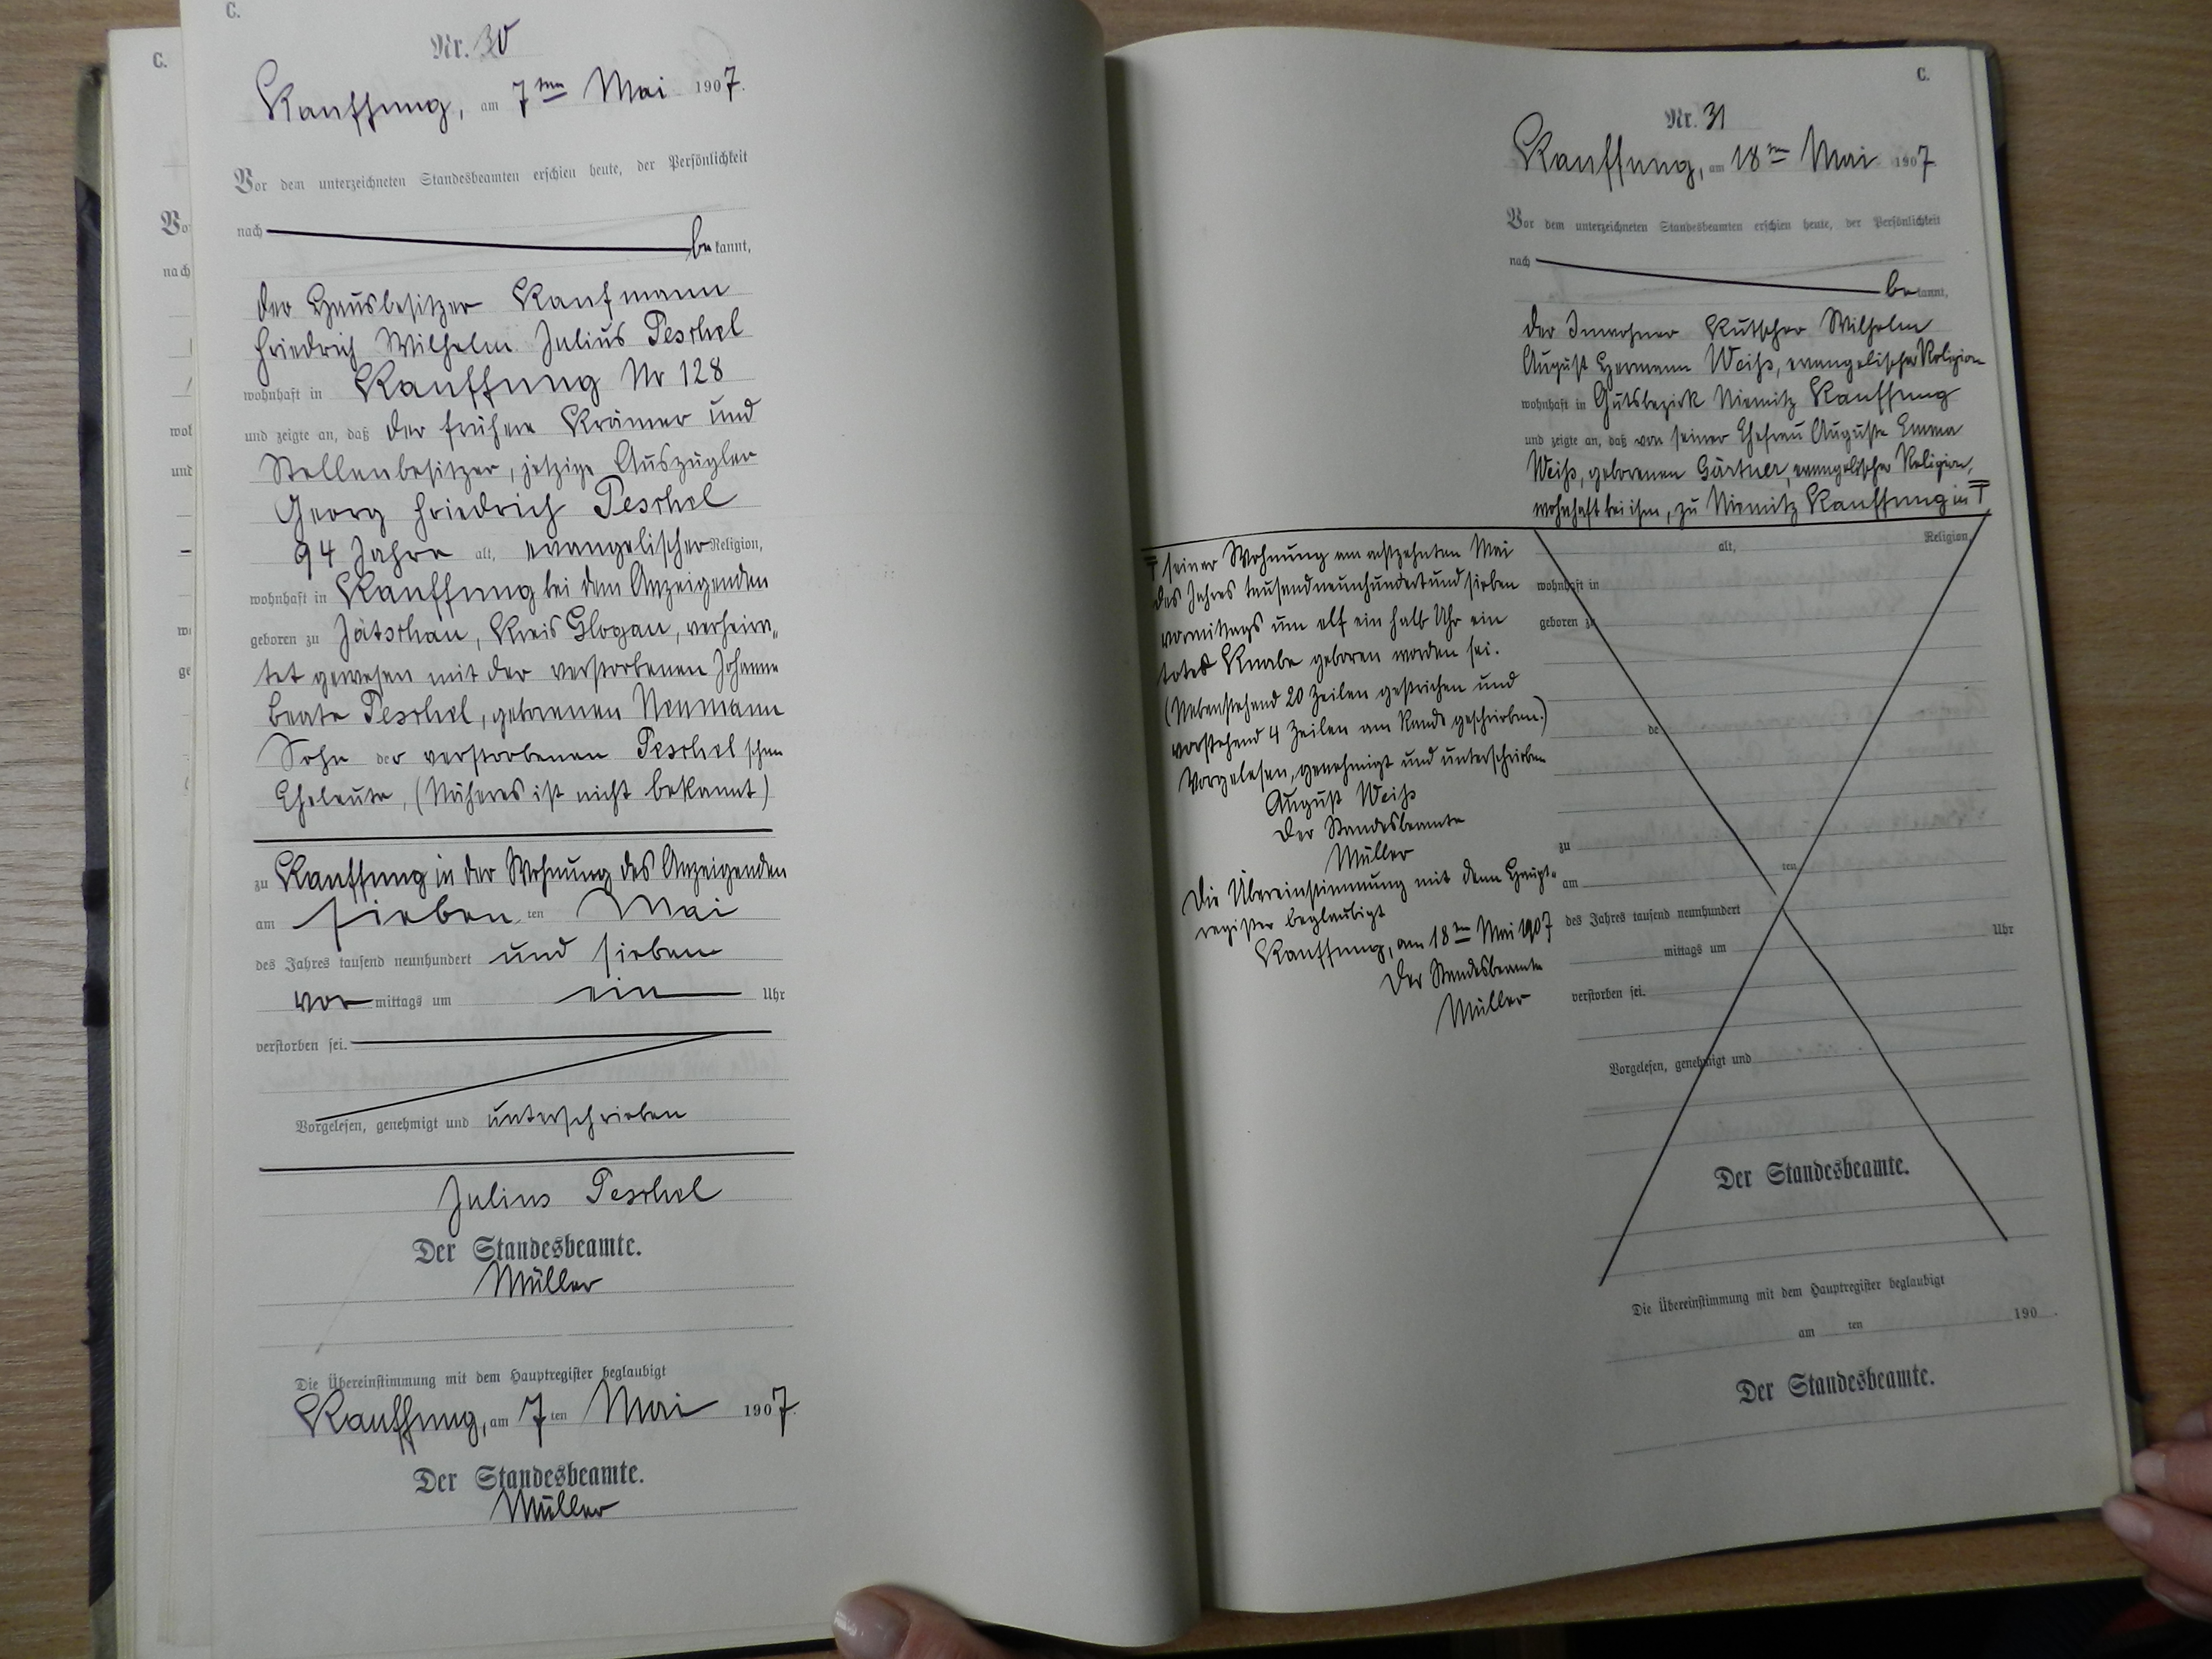 C.
Nr. 30
Kauffung, am 7ten Mai 1907.
Vor dem unterzeichneten Standesbeamten erschien heute, der Persönlichkeit
nach
bekannt,
der Hausbesitzer Kaufmann
Friedrich Wilhelm Julius Peschel
wohnhaft in Kauffung Nr 128
und zeigte an, daß der frühere Krämer und
Stellenbesitzer, jetzige Auszügler
Georg Friedrich Peschel
94 Jahre alt, evangelischer Religion,
wohnhaft in Kauffung bei dem Anzeigenden
geboren zu Jätschau, Kreis Glogau, verheira„
tet gewesen mit der verstorbenen Johanne
Beate Peschel, geborenen Neumann
Sohn der verstorbenen Peschel'schen
Eheleute, (Näheres ist nicht bekannt)
zu Kauffung in der Wohnung des Anzeigenden
am sieben ten Mai
des Jahres tausend neunhundert und sieben
vor mittags um ein Uhr
verstorben sei.
Vorgelesen, genehmigt und unterschrieben
Julius Peschel
Der Standesbeamte.
Müller
Die Übereinstimmung mit dem Hauptregister beglaubigt
Kauffung, am 7ten Mai 1907.
Der Standesbeamte.
Müller
C.
Nr. 31
Kauffung, am 18ten Mai 1907.
Vor dem unterzeichneten Standesbeamten erschien heute, der Persönlichkeit
nach
bekannt,
der Inwohner Kutscher Wilhelm
August Hermann Weiß, evangelischer Religion
wohnhaft in Gutsbezirk Niemitz Kauffung
und zeigte an, daß von seiner Ehefrau Auguste Emma
Weiß, geborenen Gärtner, evangelischer Religion,
wohnhaft bei ihm, zu Niemitz Kauffung in
seiner Wohnung am achtzehnten Mai
des Jahres tausendneunhundertundsieben
vormittags um elf ein halb Uhr ein
totes Knabe geboren worden sei.
(Nebenstehend 20 Zeilen gestrichen und
vorstehend 4 Zeilen am Rande geschrieben.)
Vorgelesen, genehmigt und unterschrieben
August Weiß
Der Standesbeamte
Müller
Die Übereinstimmung mit dem Haupt-
register beglaubigt
Kauffung, am 18ten Mai 1907
Der Standesbeamte
Müller
alt, Religion,
wohnhaft in
geboren zu
de
zu
am ten
des Jahres tausend neunhundert
mittags um Uhr
verstorben sei.
Vorgelesen, genehmigt und
Der Standesbeamte.
Die Übereinstimmung mit dem Hauptregister beglaubigt
am ten 190 .
Der Standesbeamte.